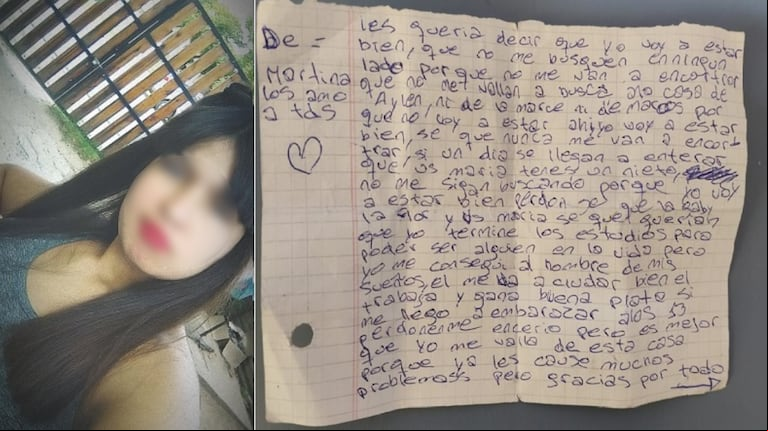 De =
Martina
los amo
a tds
les queria decir que yo voy a estar
bien, que no me busquen en ningun
lado porque no me van a encontrar
que no me vallan a busca ala casa de
Aylen, ni de la marce ni de marcos por
que no voy a estar ahi yo voy a estar
bien, se que nunca me van a encon
trar, si un dia se llegan a enterar
que vos maria tenes un nieto,
no me sigan buscando porque yo voy
a estar bien perdon se que la gaby
la flor y vos maria se que querian
que yo termine los estudios para
poder ser alguien en la vida pero
yo me consegui al hombre de mis
sueños, el me va a cuidar bien el
trabaja y gana buena plata si
me llego a embarazar alos 13
perdonenme encerio pero es mejor
que yo me valla de esta casa
porque ya les cause muchos
problemass pero gracias por todo